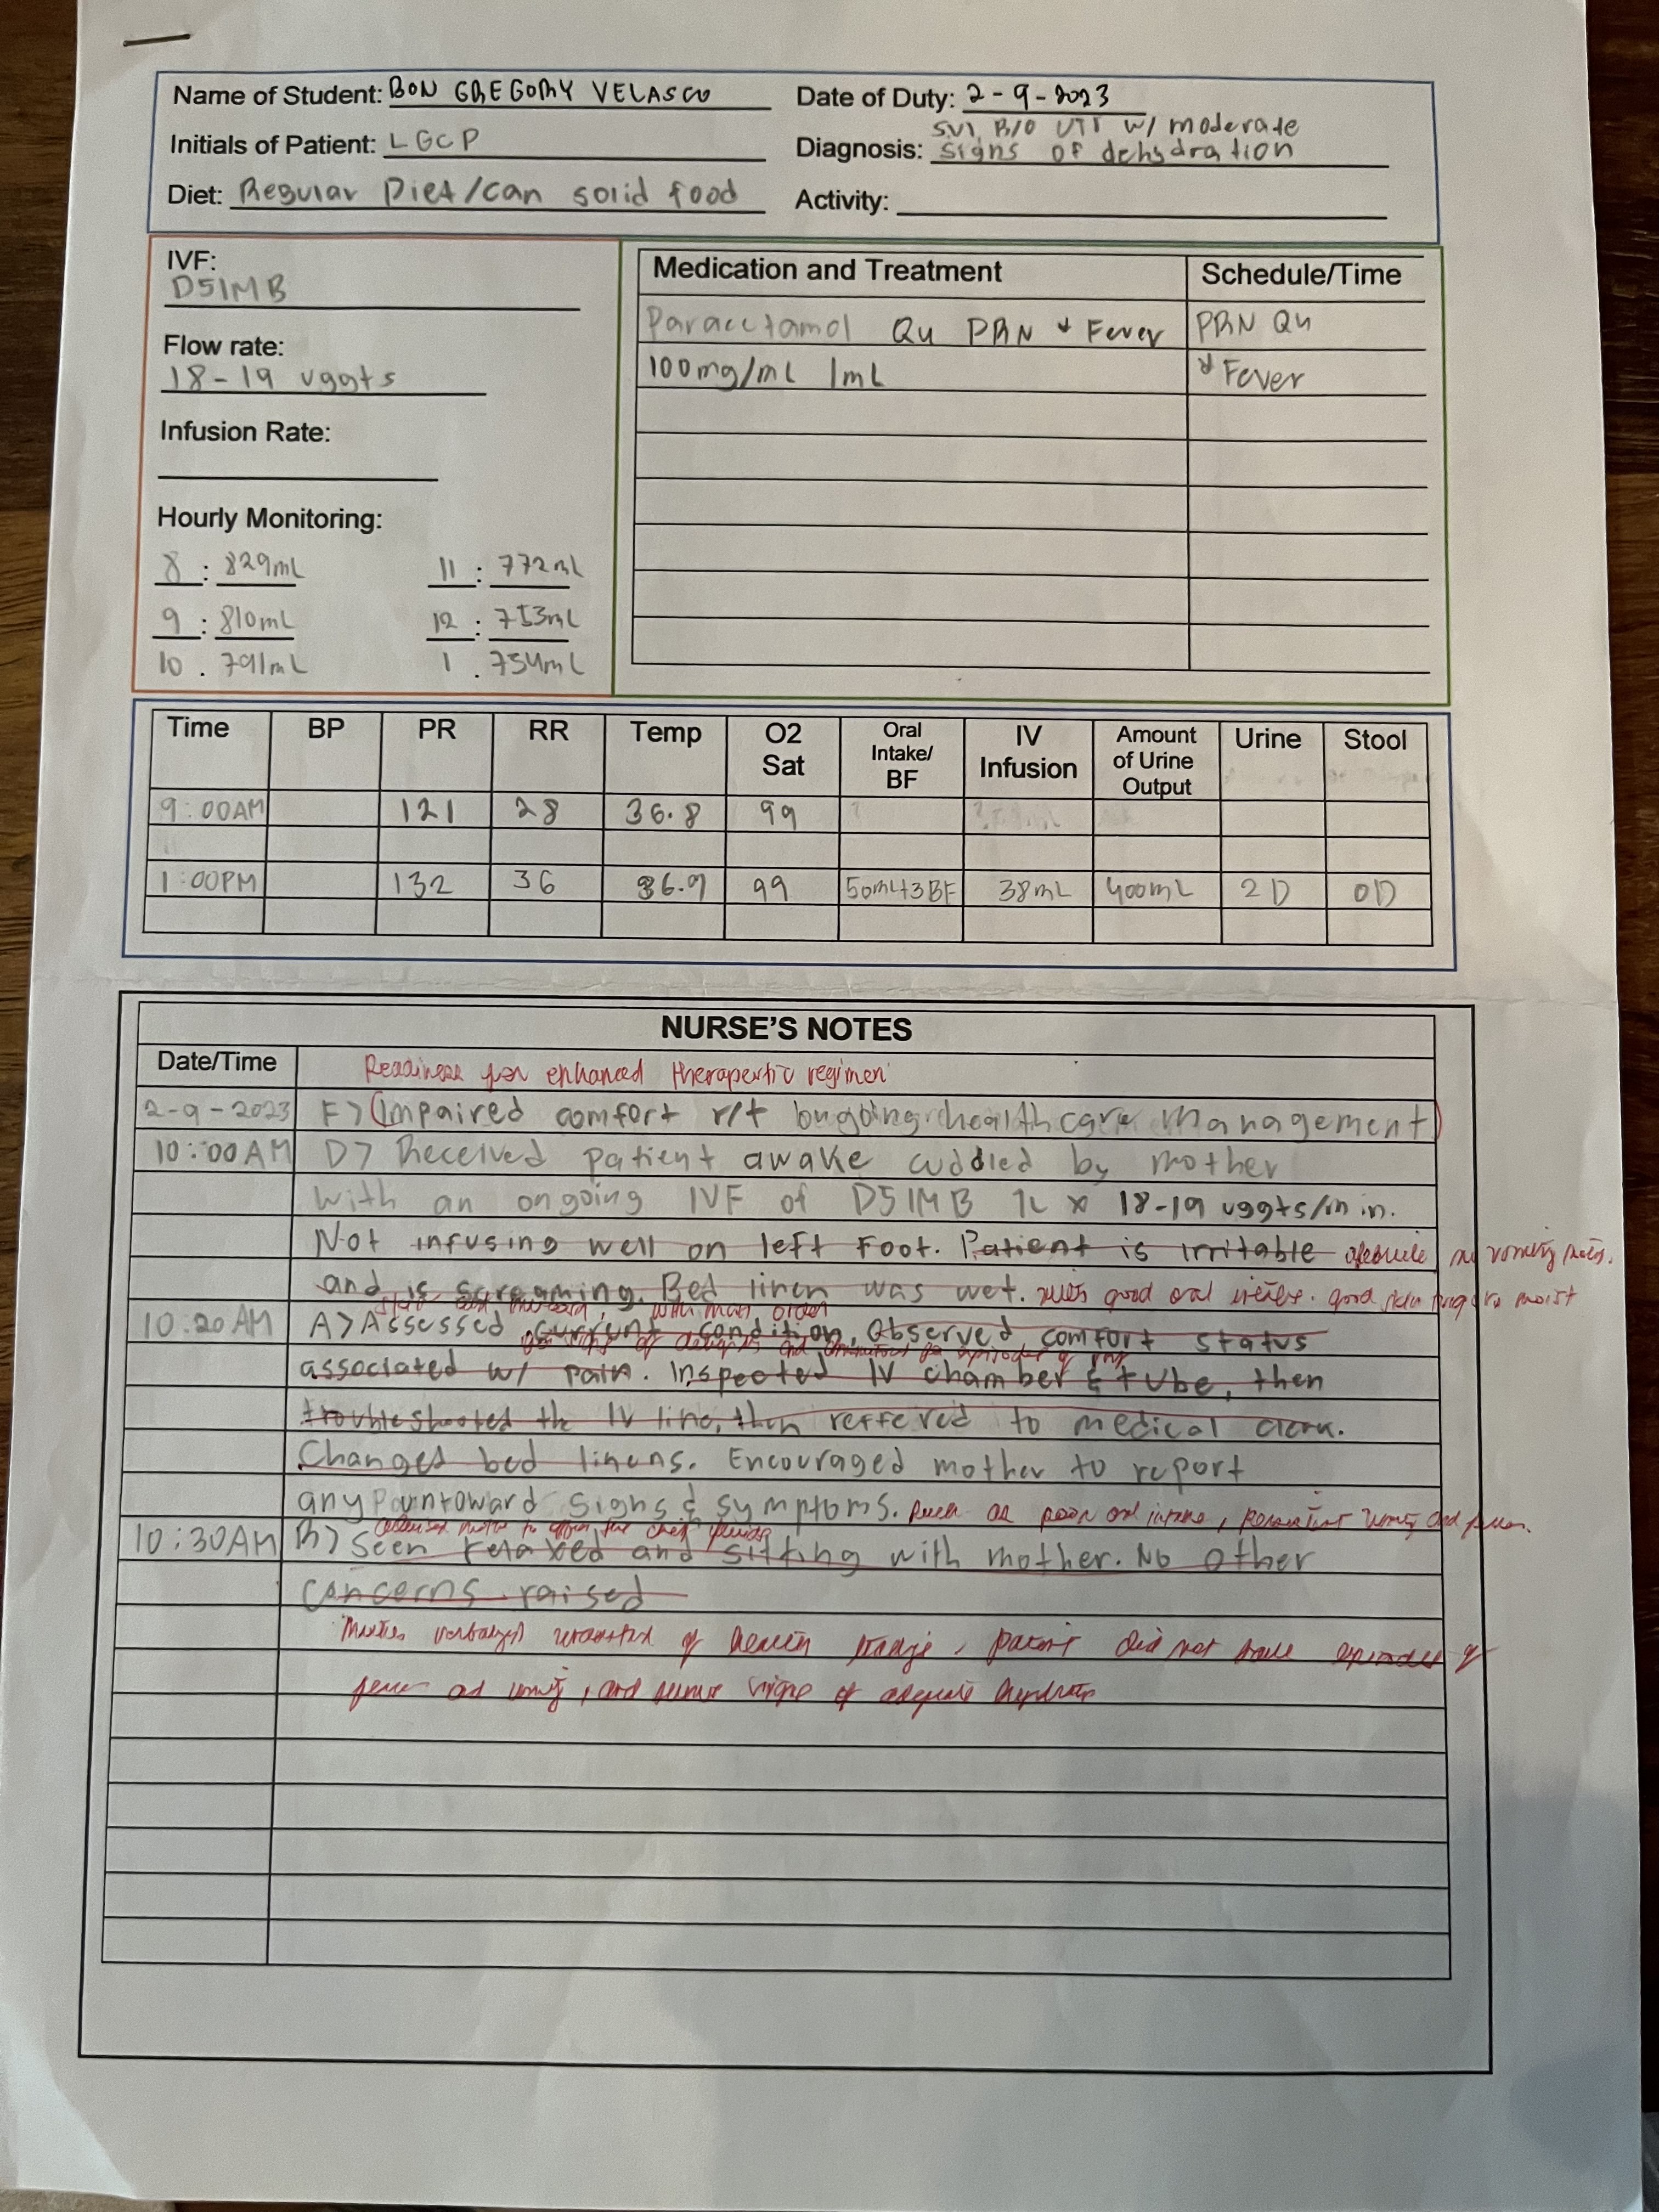 Name of Student: BON GREGORY VELASCO Date of Duty: 2-9-2023
Initials of Patient: LGCP Diagnosis: SVI, R/O UTI w/ moderate signs of dehydration
Diet: Regular Diet/can solid food Activity:
IVF:
D51MB
Flow rate:
18-19 uggts
Infusion Rate:
Hourly Monitoring:
8 : 829mL 11 : 772mL
9 : 810mL 12 : 753mL
10 . 791mL 1 . 734mL
Medication and Treatment Schedule/Time
Paracetamol Q4 PRN Fever PRN Q4
100mg/mL 1mL Fever
Time BP PR RR Temp O2 Sat Oral Intake/ BF IV Infusion Amount of Urine Output Urine Stool
9:00AM 121 28 36.8 99
1:00PM 132 36 36.9 99 50mL+3BF 38mL 400mL 2D 0D
NURSE'S NOTES
Date/Time Readiness for enhanced therapeutic regimen
2-9-2023 F> (Impaired comfort r/t ongoing healthcare management)
10:00AM D> Received patient awake cuddled by mother
with an ongoing IVF of D51MB 1L x 18-19 uggts/min.
Not infusing well on left foot. Patient is irritable afebrile, no vomiting noted.
and is screaming. Bed linen was wet. with good oral intake. good skin turgor moist
with order
10:20AM A> Assessed current condition, Observed comfort status
for episodes of
associated w/ pain. Inspected IV chamber & tube, then
troubleshooted the IV line, then reffered to medical clerk.
Changed bed linens. Encouraged mother to report
any untoward signs & symptoms. such as poor oral intake, persistent vomiting and fever.
mother to the
10:30AM R> Seen relaxed and sitting with mother. No other
concerns raised
Mother verbalized of health, patient did not have episodes of
fever and vomiting, and signs of adequate hydration